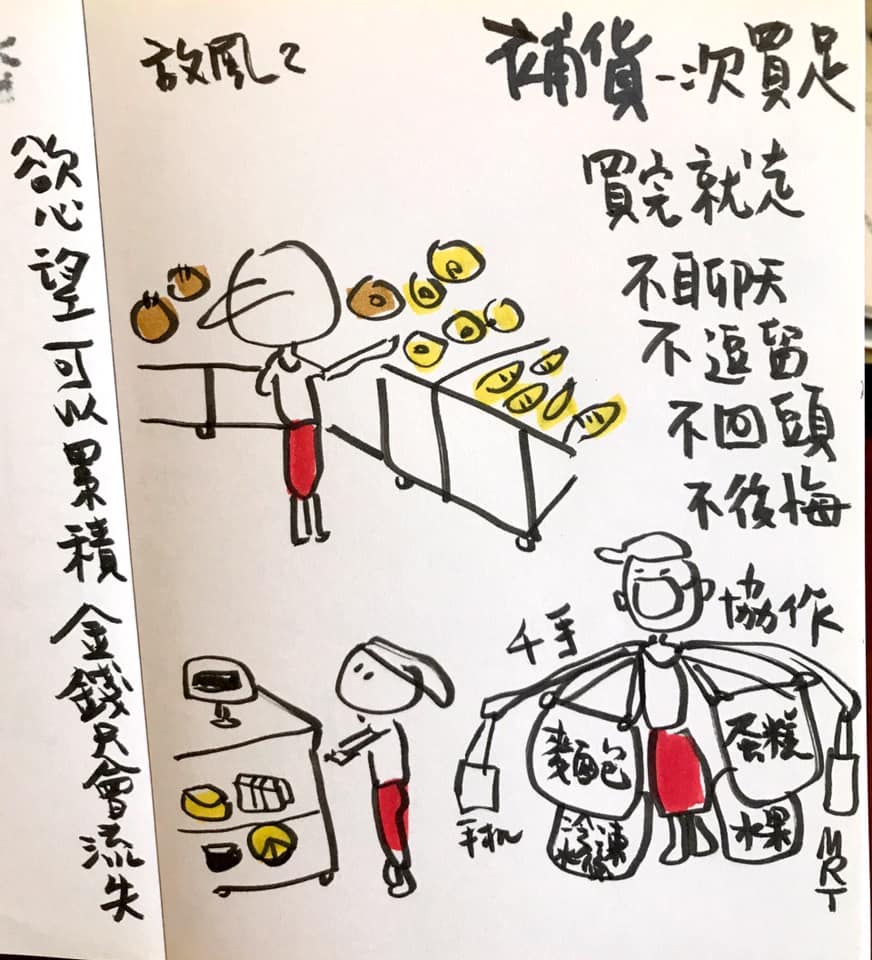 放風2
補貨一次買足
買完就走
不聊天
不逗留
不回頭
不後悔
慾望可以累積 金錢只會流失
千手
協作
麵包
蛋糕
冷凍
水果
手机
MRT